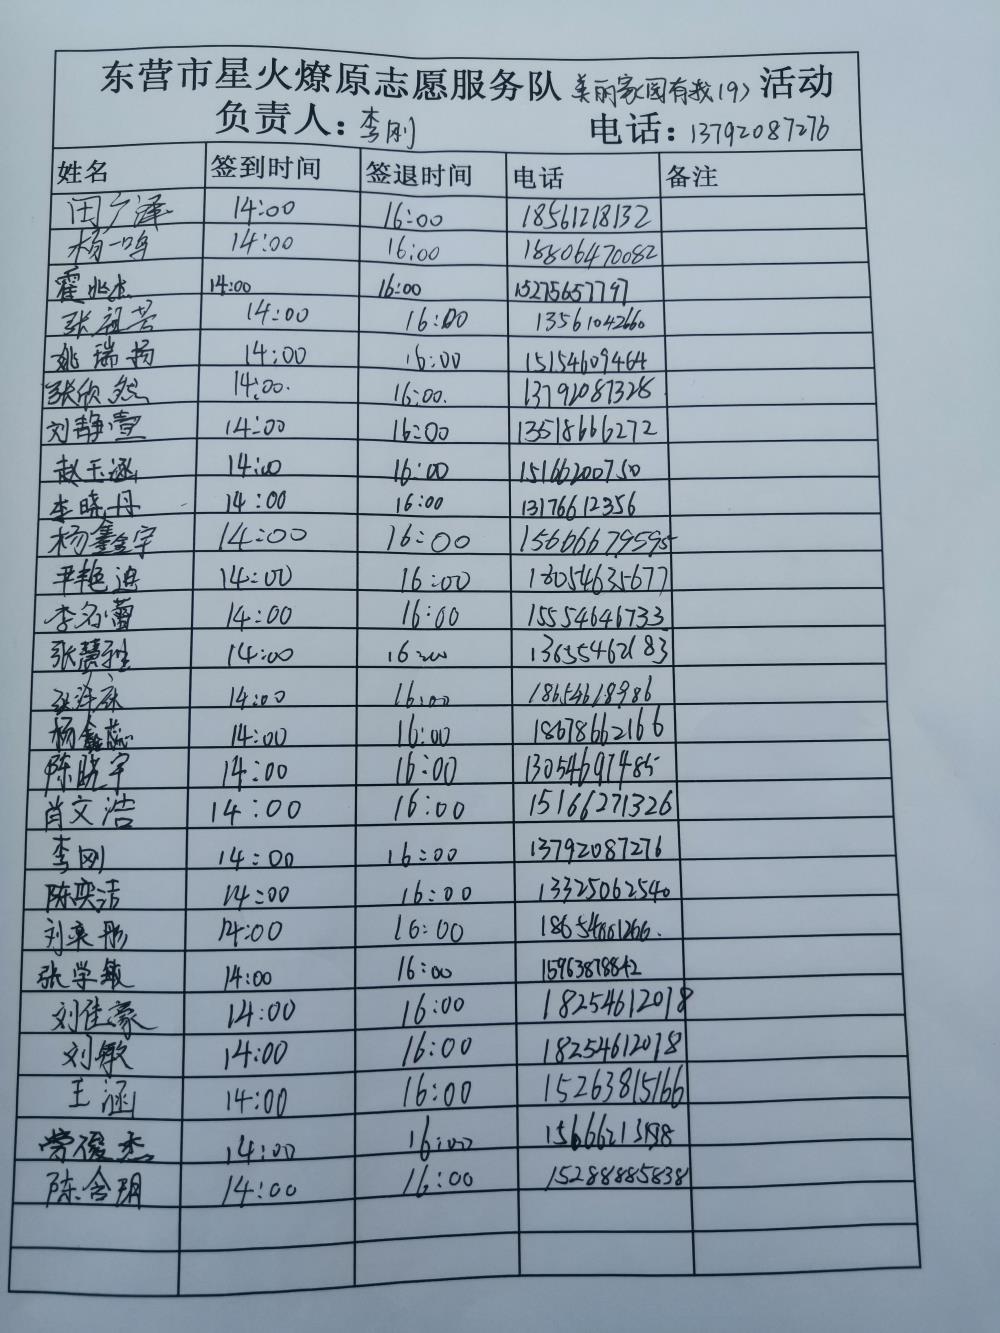 东营市星火燎原志愿服务队 美丽家园有我(9) 活动
负责人：李刚 电话：13792087276
姓名 签到时间 签退时间 电话 备注
田广泽 14:00 16:00 18561218132
杨一鸣 14:00 16:00 18806470082
霍兆杰 14:00 16:00 15275657797
张祖芸 14:00 16:00 13561042660
姚瑞扬 14:00 16:00 15154609464
张欣然 14:00. 16:00. 13792087326
刘静萱 14:00 16:00 13518666272
赵玉涵 14:00 16:00 15166200750
李晓丹 14:00 16:00 13176612356
杨鑫宇 14:00 16:00 15666679595
尹艳迪 14:00 16:00 18054635677
李名蕾 14:00 16:00 15554646733
张慧 14:00 16:00 13655462183
张 14:00 16:00 18654618986
杨鑫蕊 14:00 16:00 18678662166
陈晓宇 14:00 16:00 13054697485
肖文浩 14:00 16:00 15166271326
李刚 14:00 16:00 13792087276
陈奕洁 14:00 16:00 13325062540
刘奕彤 14:00 16:00
张学敏 14:00 16:00 15963878842
刘佳豪 14:00 16:00 18254612018
刘敏 14:00 16:00 18254612018
王涵 14:00 16:00 15263815166
俊杰 14:00 16:00
陈含玥 14:00 16:00 15288885838